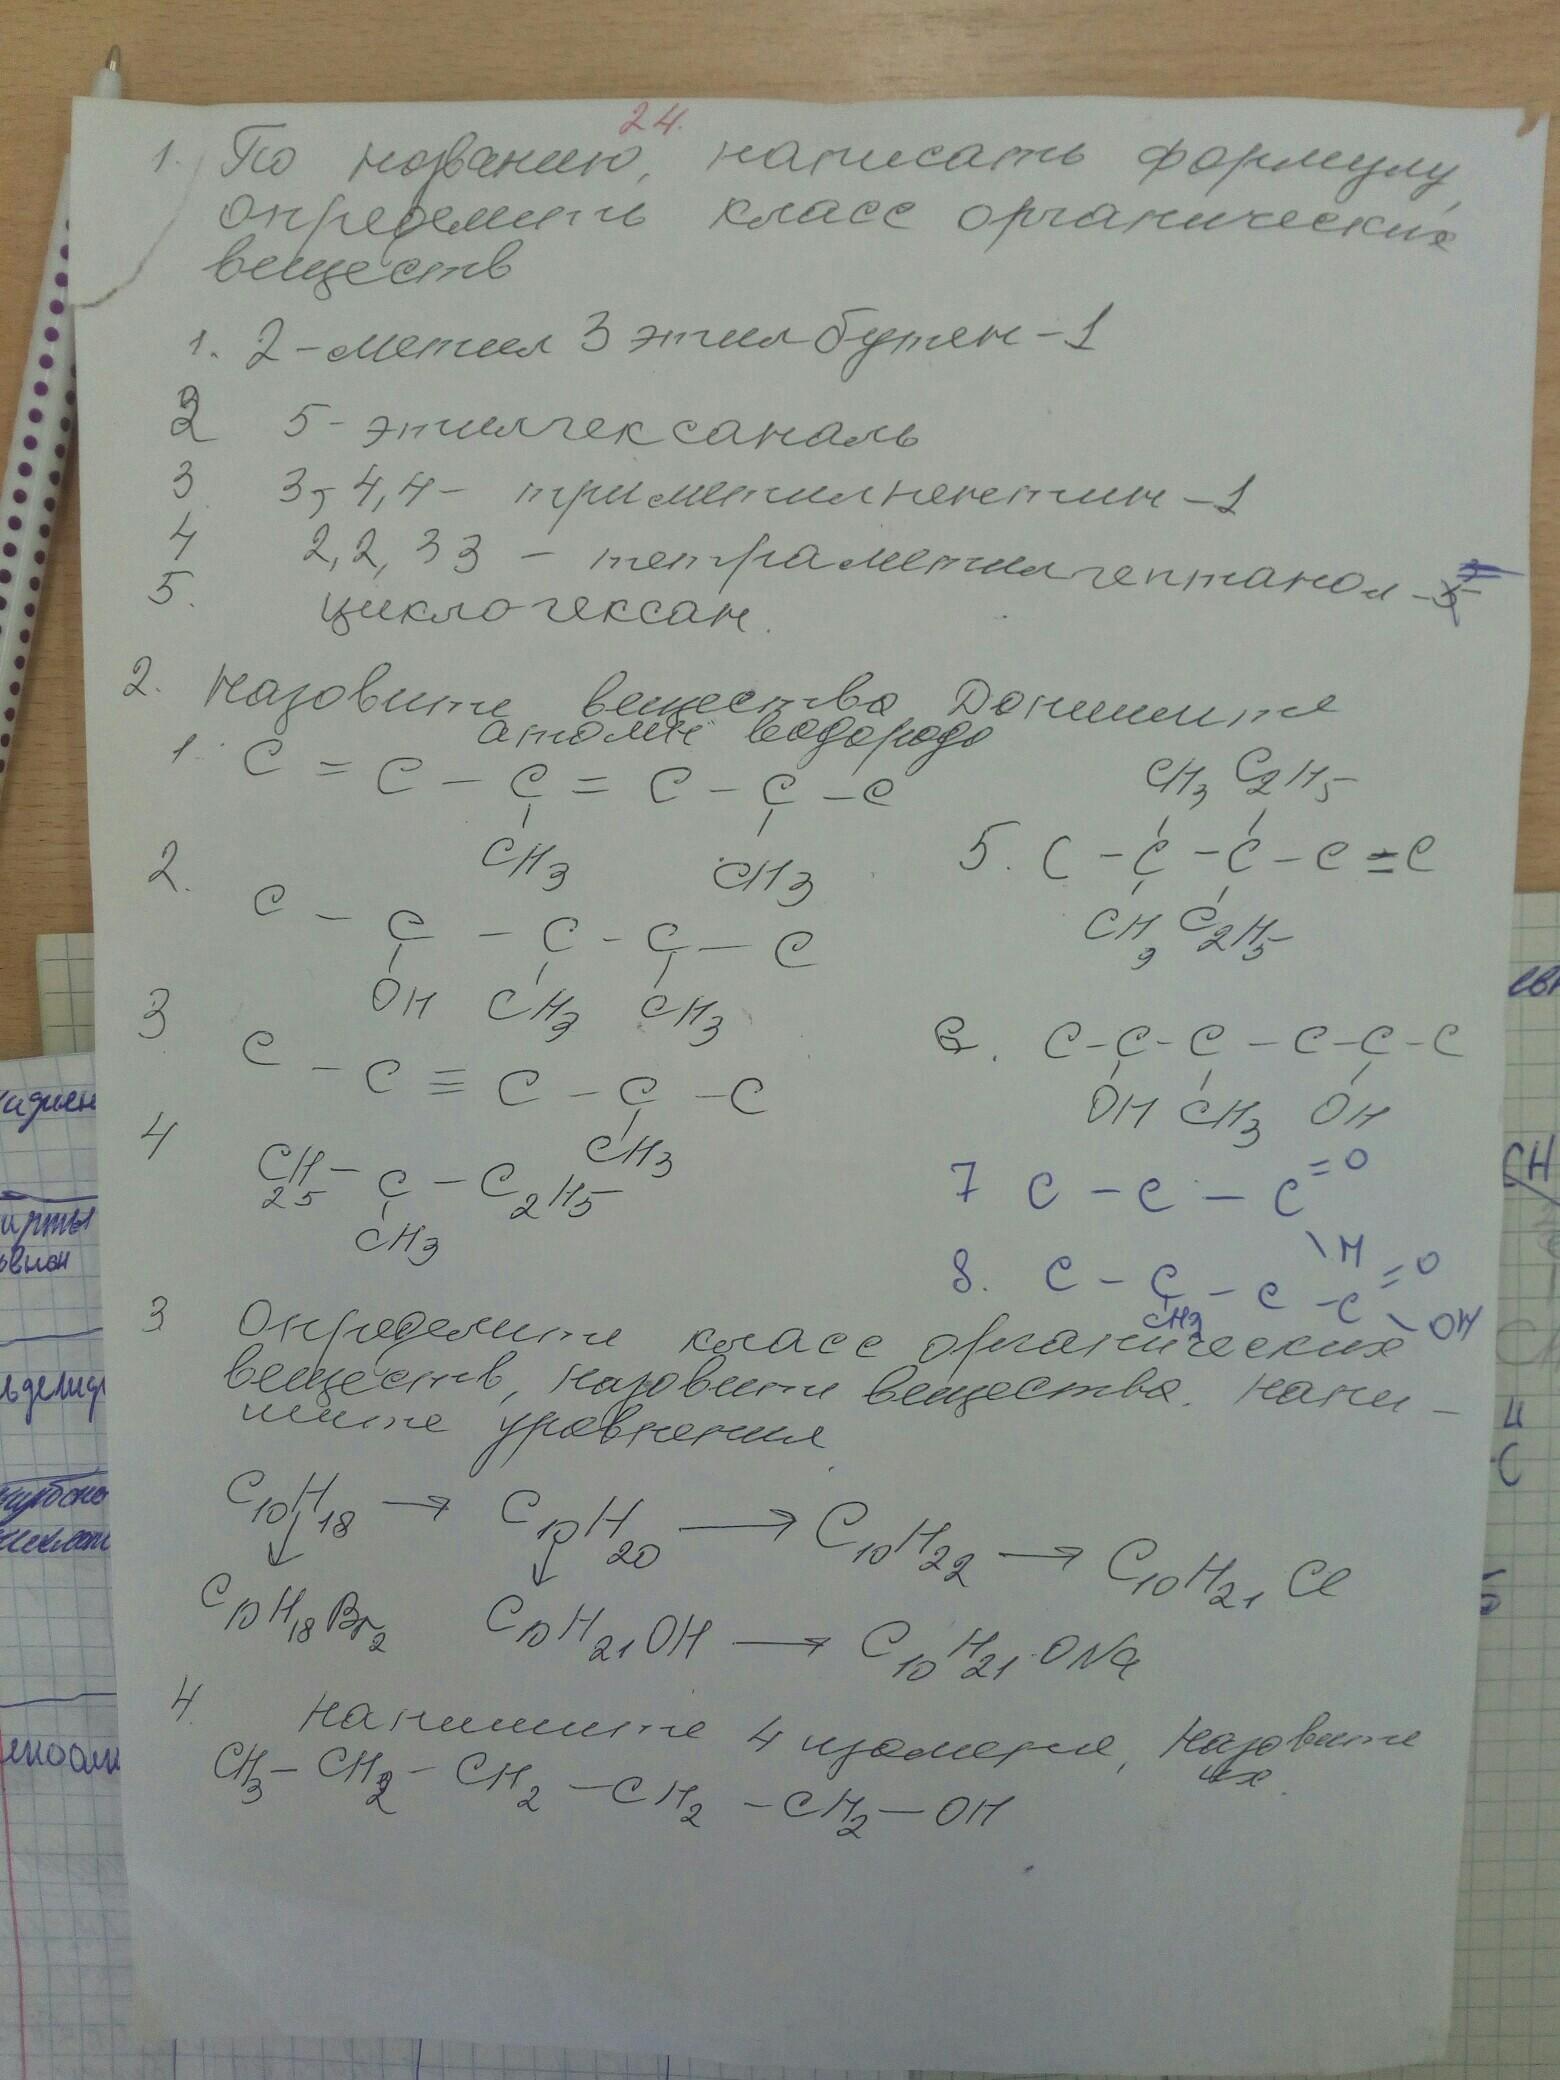 24.
1. По названию, написать формулу,
определить класс органических
веществ
1. 2-метил 3 этил бутен-1
2 5-этилгексаналь
3 3, 4,4- триметилпентин-1
4 2,2, 3 3 - тетраметилгептанол
5. циклогексан.
2. Назовите вещества Допишите
атомы водорода
1. C = C - C = C - C - C
CH3 CH3
2. C - C - C - C - C
OH CH3 CH3
3 C - C ≡ C - C - C
CH3
4 C2H5 - C - C2H5
CH3
CH3 C2H5
5. C - C - C - C = C
CH3 C2H5
6. C-C-C-C-C-C
OH CH3 OH
7 C - C - C =O
\H
8. C - C - C - C =O
CH3 \OH
3 Определите класс органических
веществ, назовите вещества. Напи-
шите уравнения
C10H18 → C10H20 → C10H22 → C10H21Cl
↓ ↓
C10H18Br2 C10H21OH → C10H21ONa
4. Напишите 4 изомера, назовите
их.
CH3- CH2- CH2 -CH2 -CH2-OH
идиен
ирты
льдегид
CH